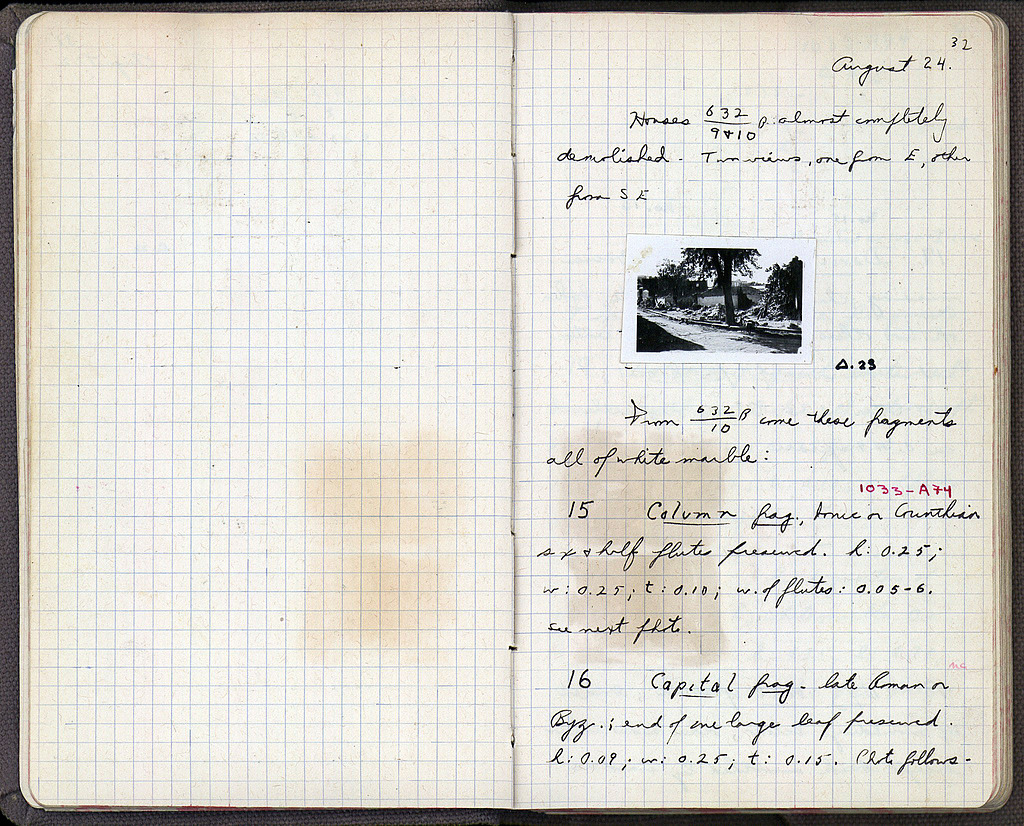 32
August 24.
Houses 632/9+10 β: almost completely
demolished - Two views, one from E, other
from S E
Δ.23
From 632/10 β come these fragments
all of white marble:
1033-A74
15 Column frag., Ionic or Corinthian
six + half flutes preserved. h: 0.25;
w: 0.25; t: 0.10; w. of flutes: 0.05-6.
see next photo.
nc
16 Capital frag - late Roman or
Byz.; end of one large leaf preserved.
h: 0.09; w: 0.25; t: 0.15. Photo follows -